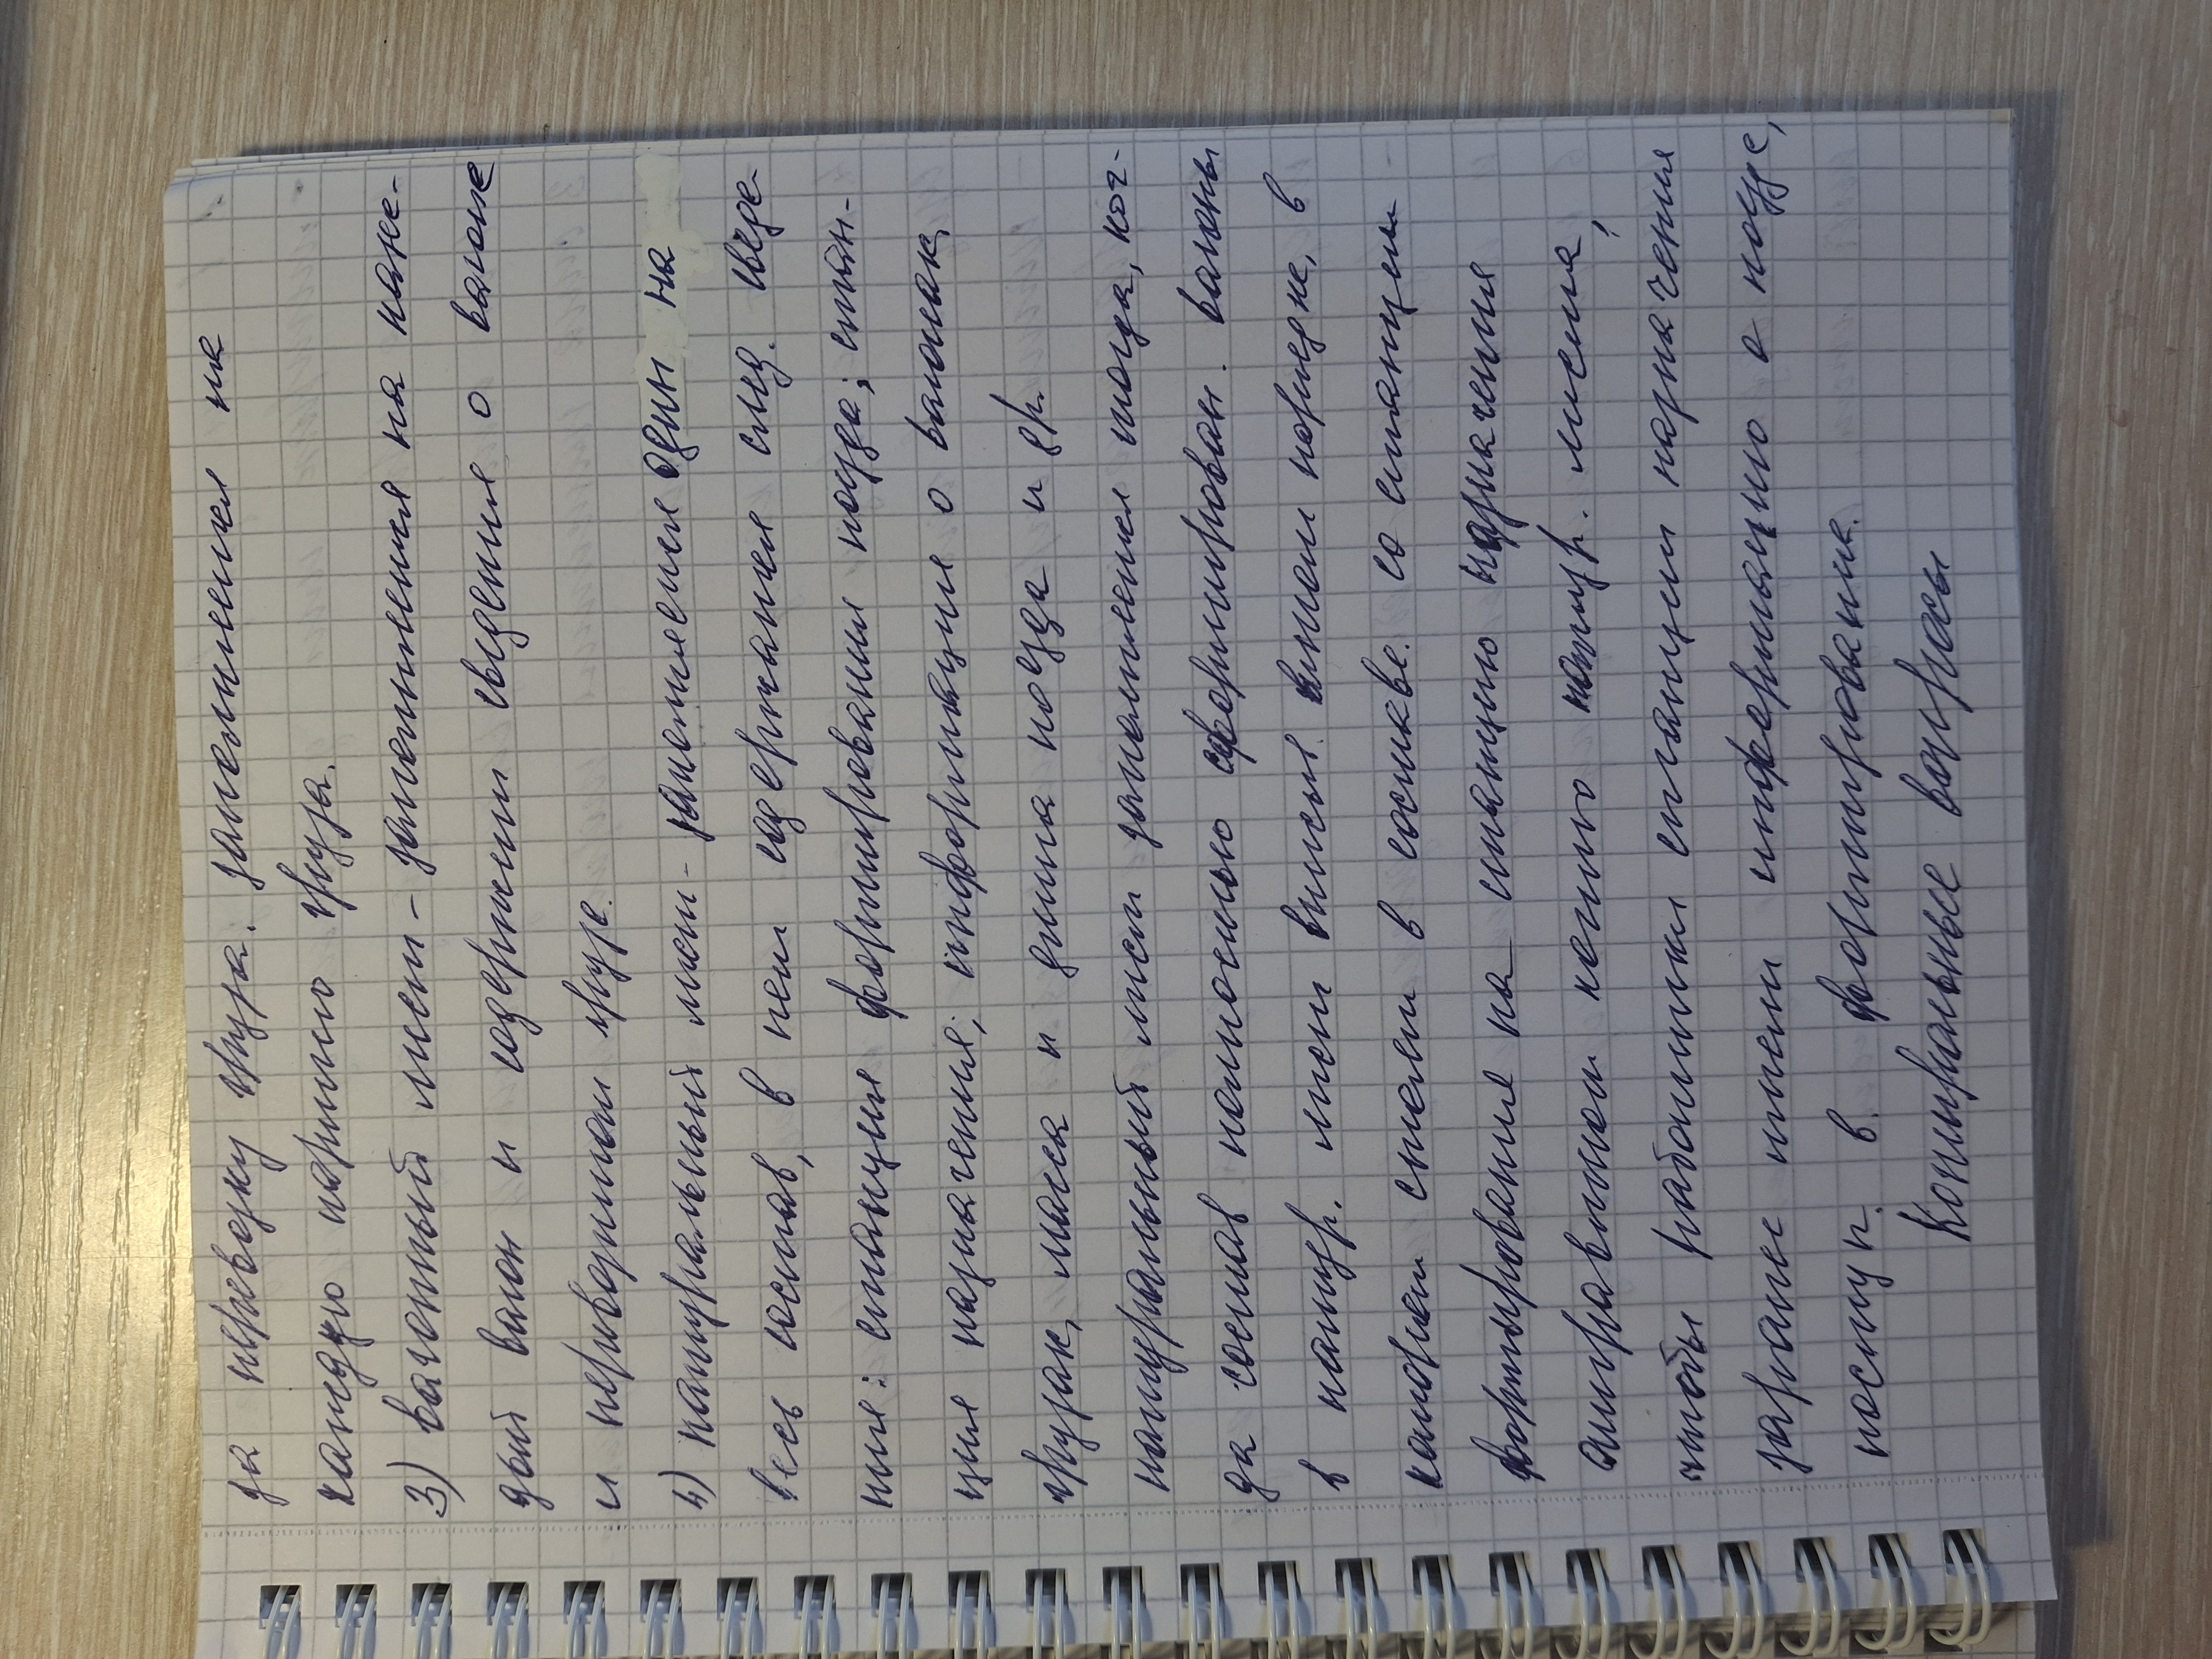 за перевозку груза. заполняется на
каждую партию груза.
3) вагонный лист - заполняется на каж-
дый вагон и содержит сведения о вагоне
и перевозимом грузе.
4) натурный лист - заполняется один на
весь состав, в нем содержатся след. сведе-
ния: станция формирования поезда; стан-
ция назначения; информация о вагонах,
грузах, масса и длина поезда и др.
натурный лист заполняется тогда, ког-
да состав полностью сформирован. вагоны
в натур. лист впис. в том порядке, в
котором стоят в составе. со станции
формирования на станцию назначения
отправляют копию натур. листа,
чтобы работники станции назначения
заранее имели информацию о поезде,
поступ. в расформирование.
Контрольные вопросы